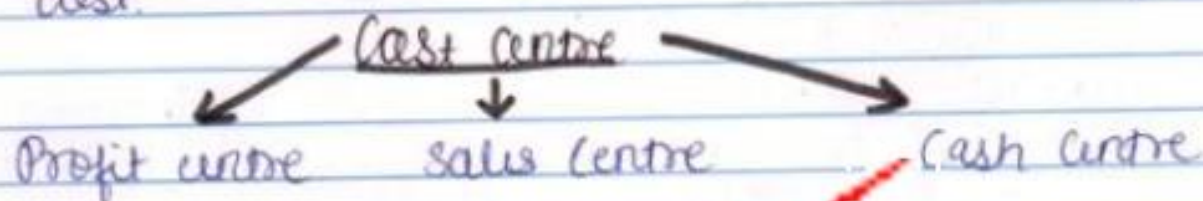 cost.
Cost centre
Profit centre sales centre Cash centre